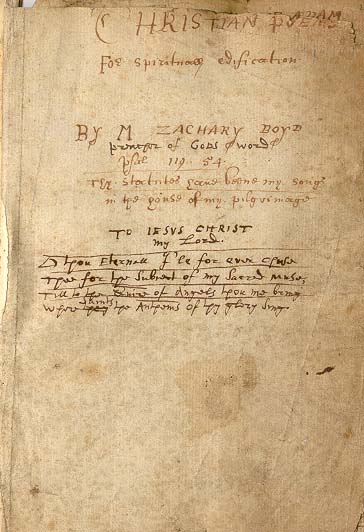 CHRISTIAN POEMS
For spirituall edification
By M ZACHARY BOYD
preacher of GODS word
Psal 119. 54.
Thy Statutes have beene my songs
in the house of my pilgrimage
TO IESUS CHRIST
my Lord.
O thou Eternall I'le for ever chuse
Thee for the Subiect of my Sacred Muse,
Till to the Quire of Angels thou me bring
Where Saints the Anthems of thy glory sing.